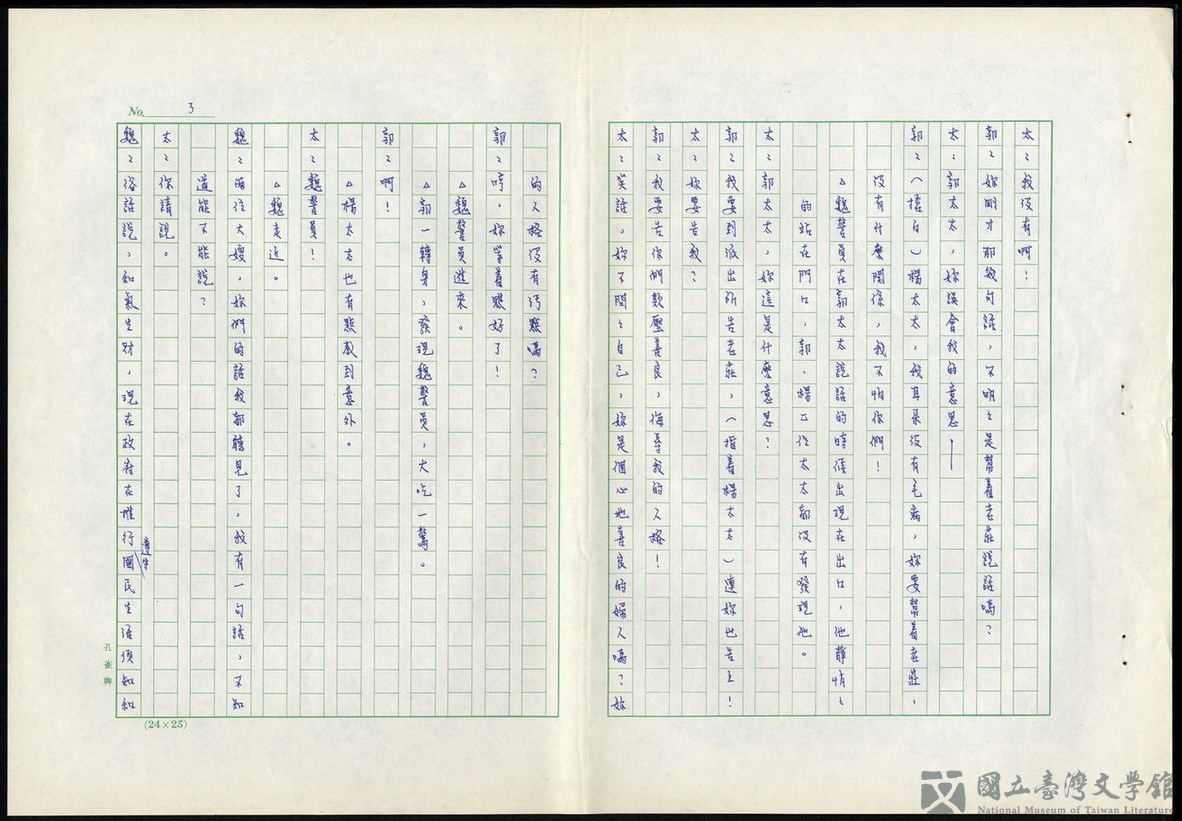 No. 3
太：我沒有啊！
郭：妳剛才那我句話，不明明是幫着老莊說話嗎？
太：郭太太，妳誤會我的意思——
郭：（搶白）楊太太，我耳朵沒有毛病，妳要幫着老莊，
沒有什麼關係，我不怕你們！
△魏警員在郭太太說話的時候出現在出口，他靜悄悄
的站在門口，郭、楊二位太太都沒有發現他。
太：郭太太，妳這是什麼意思？
郭：我要到派出所告老莊，（指着楊太太）連妳也告上！
太：妳要告我？
郭：我要告你們欺壓善良，侮辱我的人格！
太：笑話，妳不問問自己，妳是個心地善良的婦人嗎？妳
的人格沒有污點嗎？
郭：哼，妳等着瞧好了！
△魏警員進來。
△郭一轉身，發現魏警員，大吃一驚。
郭：啊！
△楊太太也有點感到意外。
太：魏警員！
△魏走近。
魏：兩位大嫂，妳們的話我都聽見了，我有一句話，不知
道能不能說？
太：你請說。
魏：俗話說，和氣生財，現在政府在推行遵守國民生活須知和
孔雀牌
(24×25)
國立臺灣文學館
National Museum of Taiwan Literature